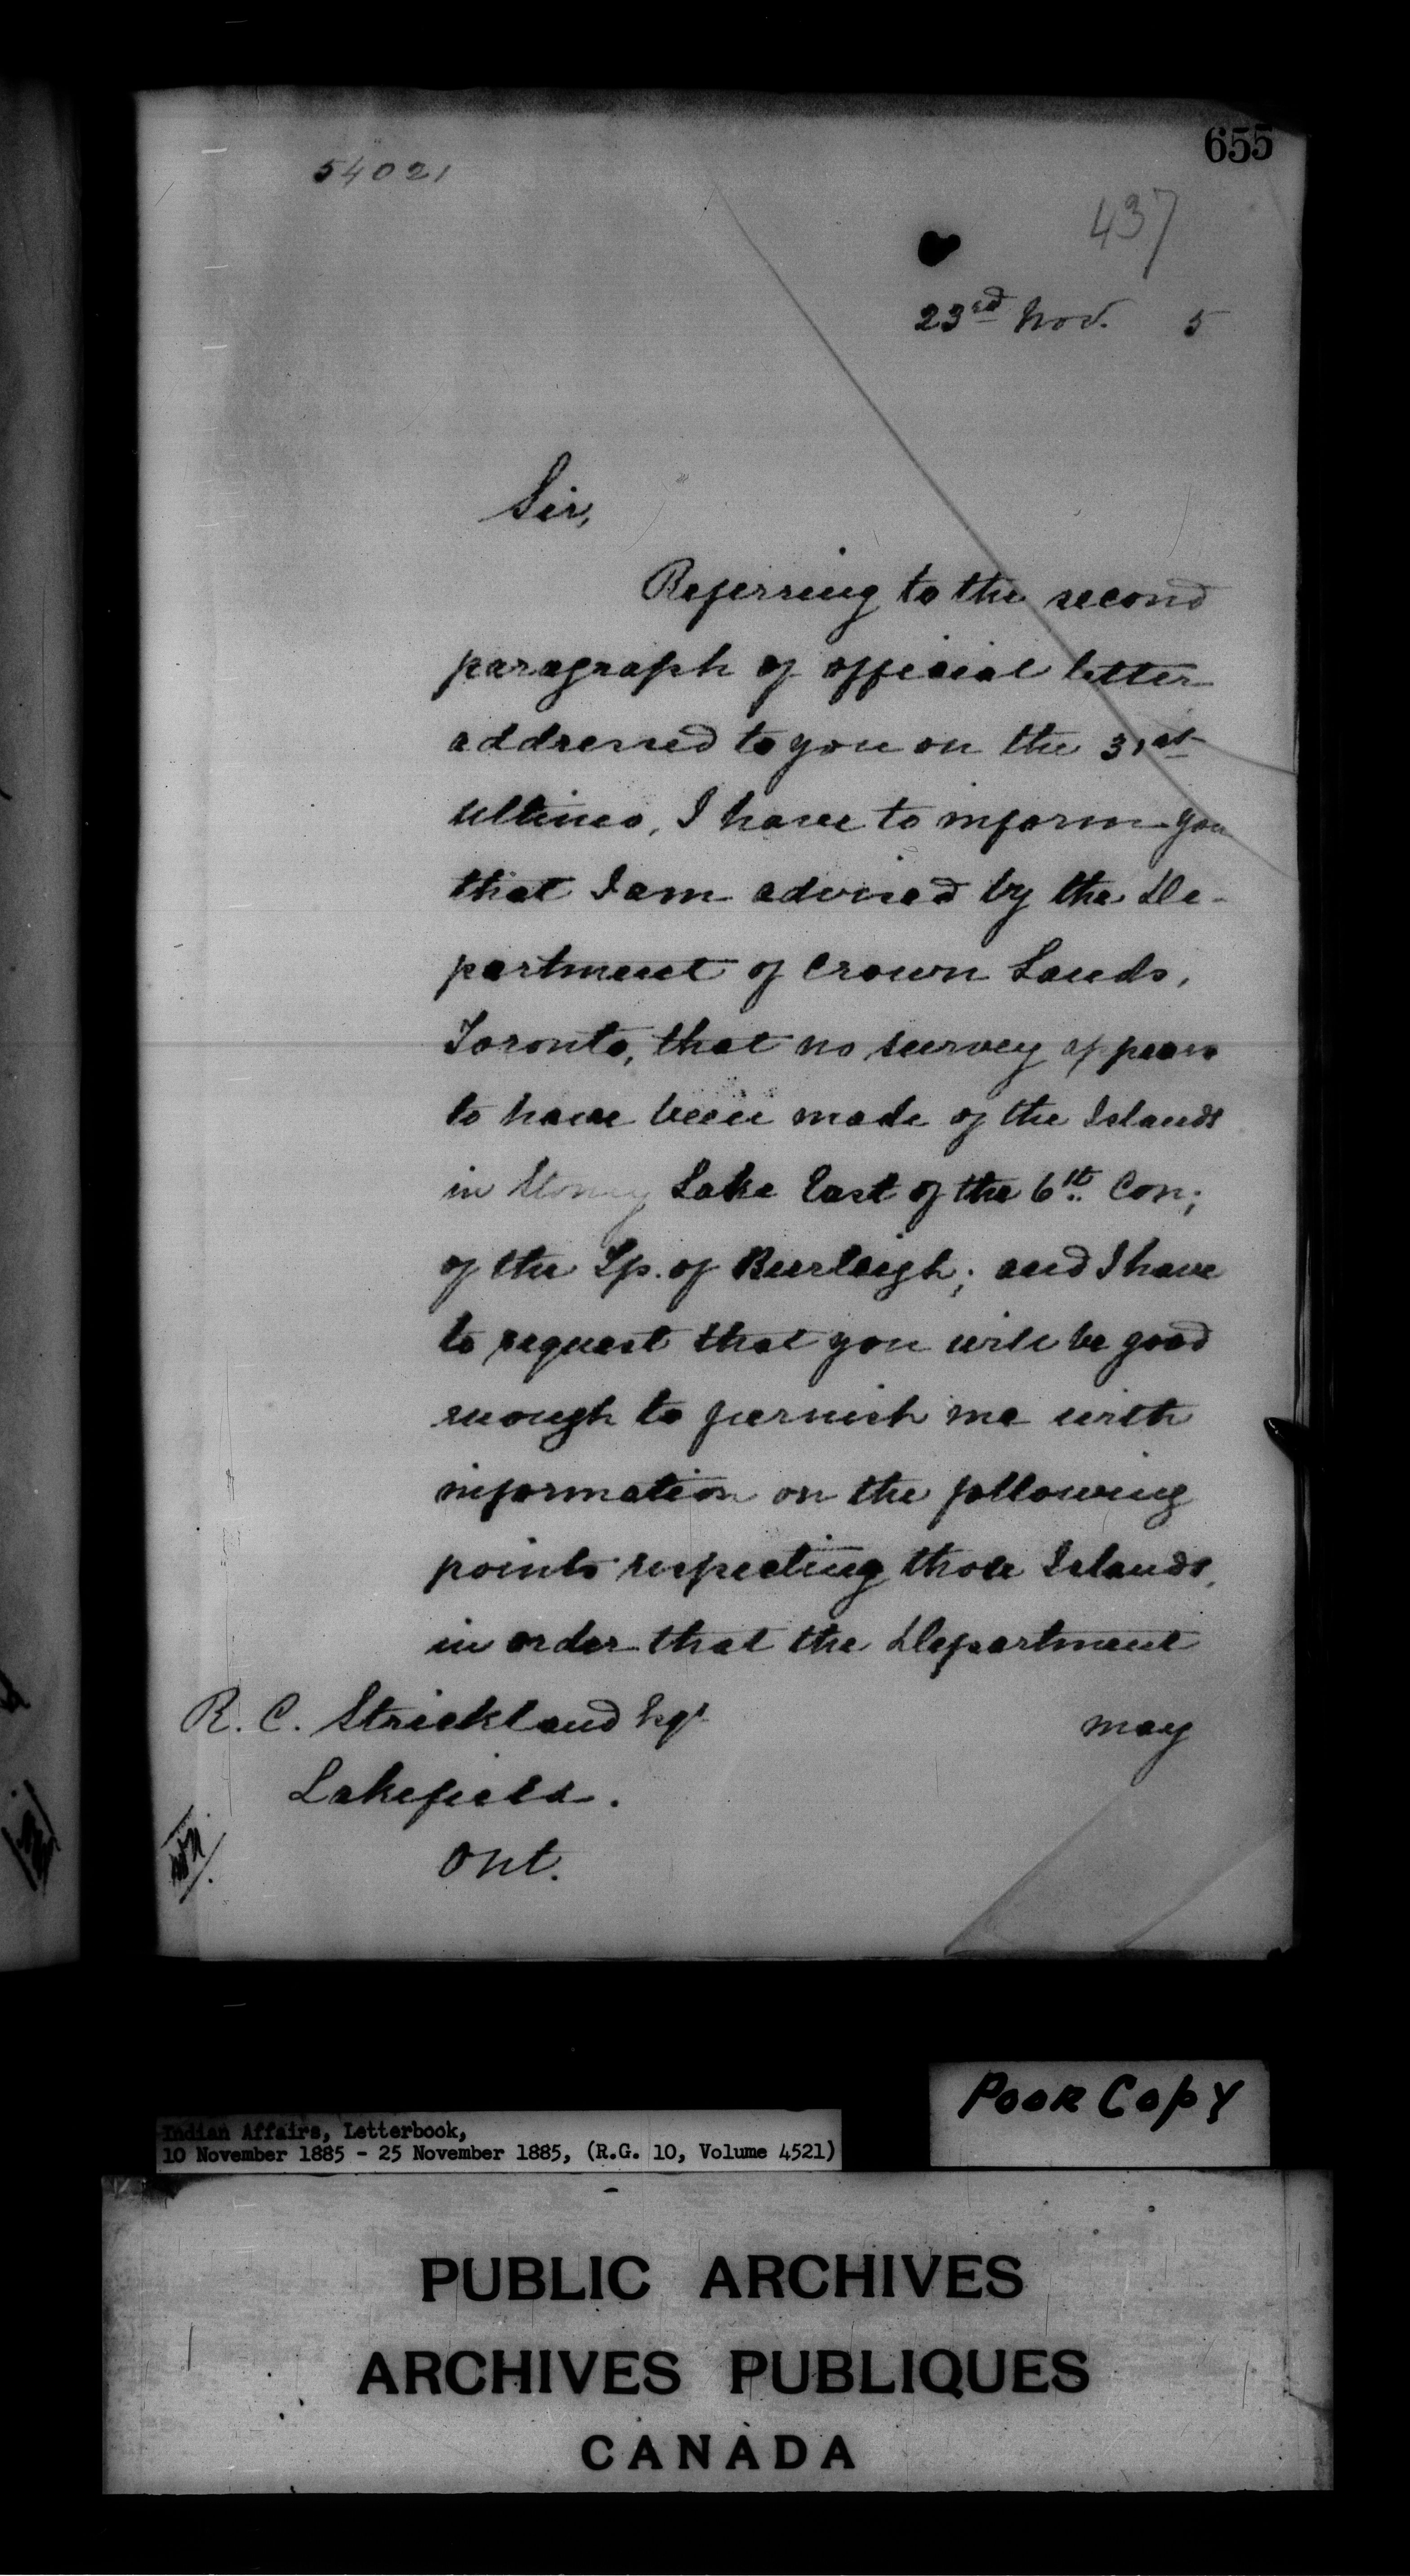 655
54021
437
23rd Nov. 5
Sir,
Referring to the second
paragraph of official letter
addressed to you on the 31st
ultimo, I have to inform you
that I am advised by the De-
partment of Crown Lands,
Toronto, that no survey appears
to have been made of the Islands
in Stoney Lake East of the 6th Con;
of the Tp. of Burleigh; and I have
to request that you will be good
enough to furnish me with
information on the following
points respecting those Islands,
in order that the Department
may
R. C. Strickland Esqr
Lakefield.
Ont.
POOR COPY
Indian Affairs, Letterbook,
10 November 1885 - 25 November 1885, (R.G. 10, Volume 4521)
PUBLIC ARCHIVES
ARCHIVES PUBLIQUES
CANADA